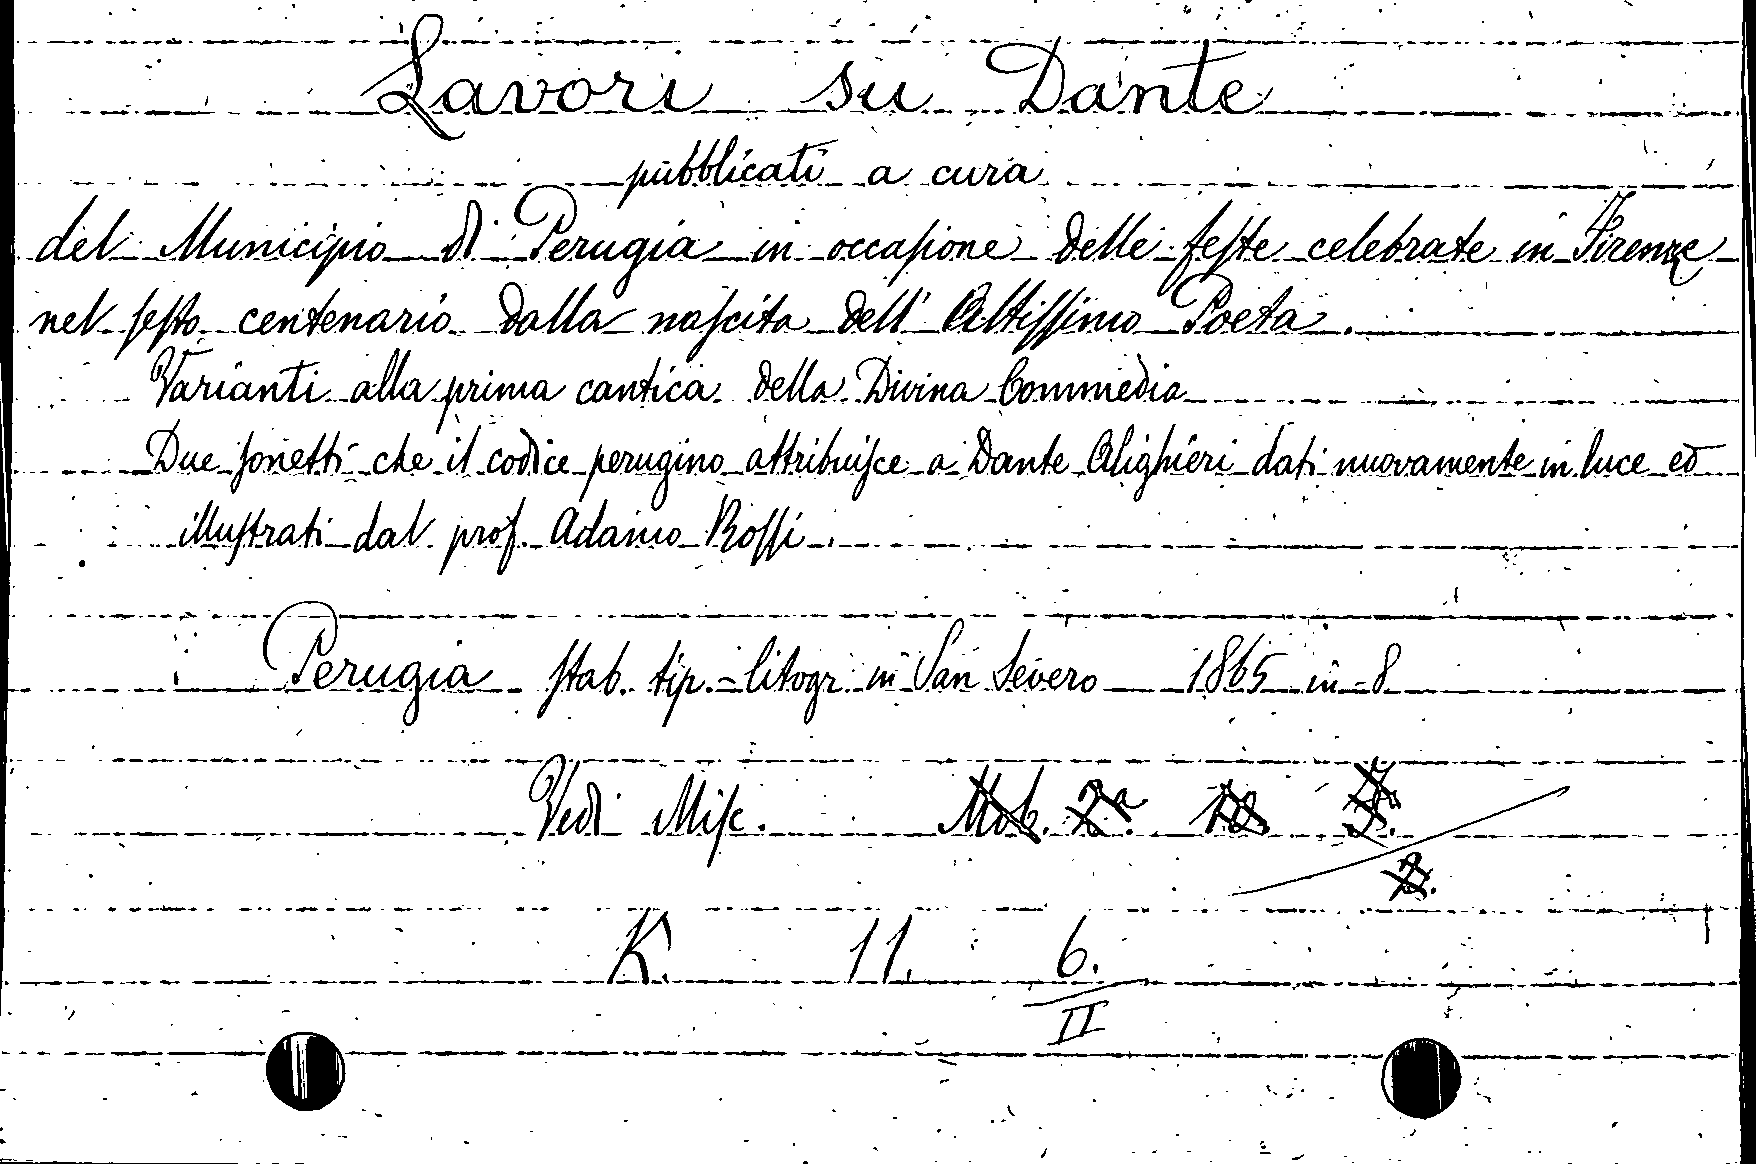 Lavori su Dante
pubblicati a cura
del Municipio di Perugia in occaſione delle feſte celebrate in Firenze
nel ſeſto centenario dalla naſcita dell' Altiſſimo Poeta.
Varianti alla prima cantica della Divina Commedia
Due ſonetti che il codice perugino attribuiſce a Dante Alighieri dati nuovamente in luce ed
illuſtrati dal prof. Adamo Roſſi.
Perugia ſtab. tip.-litogr. in San Severo 1865 in-8
Vedi Miſc. Mob. 2ª
2.
K. 11. 6.
II